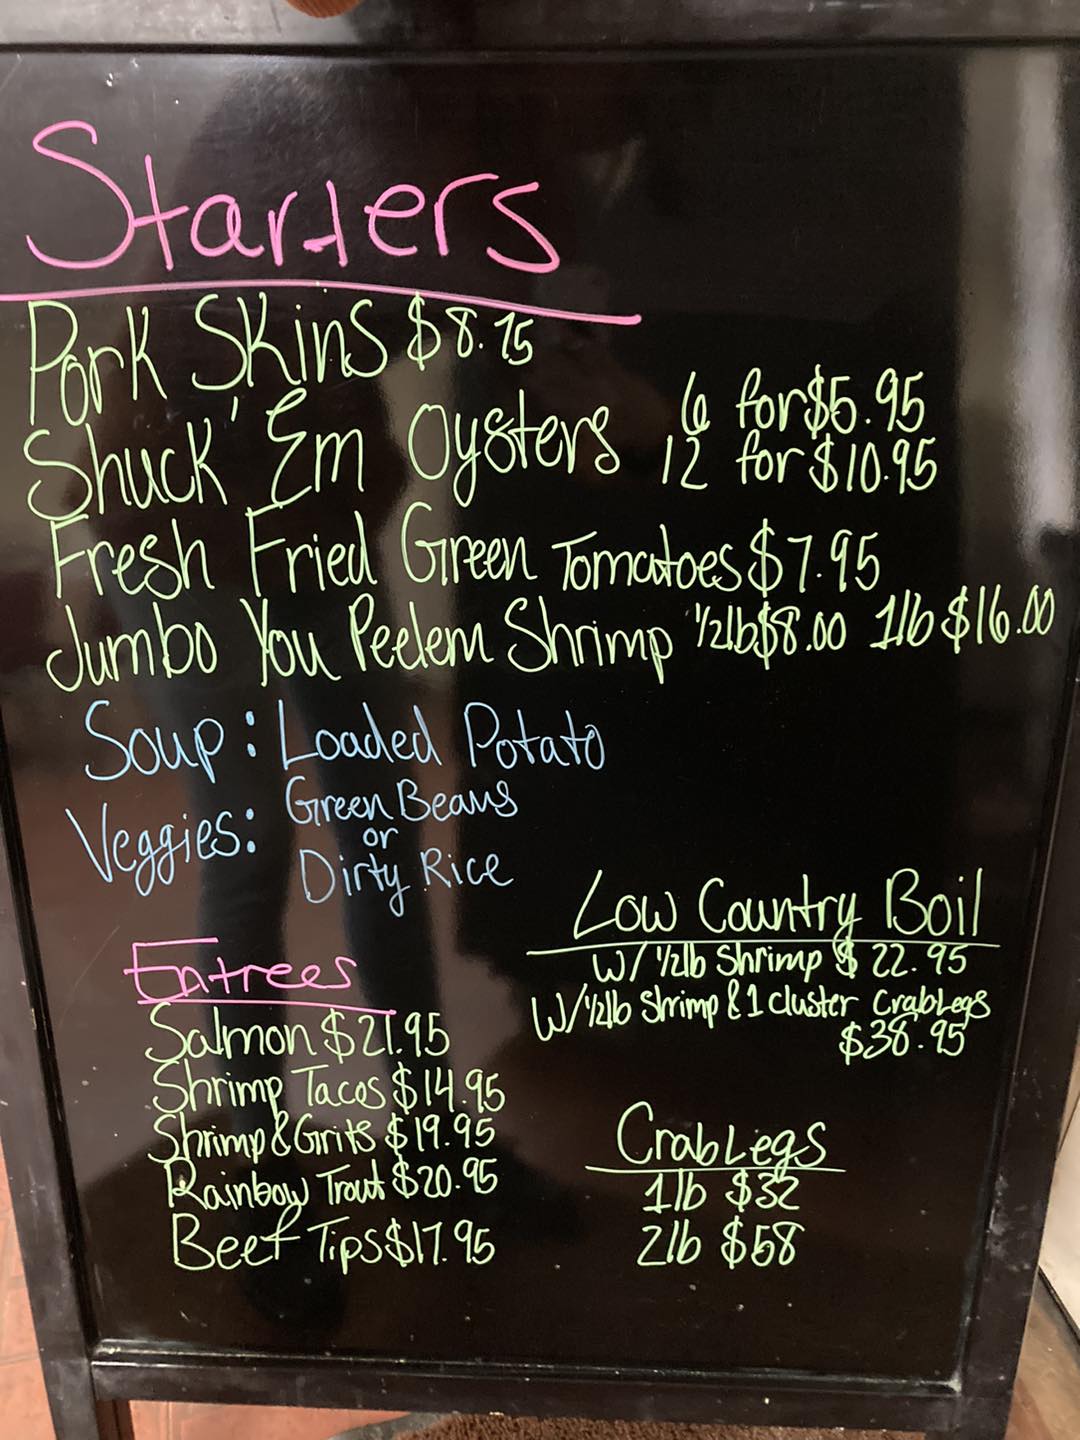 Starters
Pork Skins $8.75
Shuck' Em Oysters 6 for $5.95
12 for $10.95
Fresh Fried Green Tomatoes $7.95
Jumbo You Peelem Shrimp ½lb $8.00 1lb $16.00
Soup: Loaded Potato
Veggies: Green Beans
or
Dirty Rice
Entrees
Salmon $21.95
Shrimp Tacos $14.95
Shrimp & Grits $19.95
Rainbow Trout $20.95
Beef Tips $17.95
Low Country Boil
W/ ½lb Shrimp $22.95
W/ ½lb Shrimp & 1 cluster Crab Legs
$38.95
Crab Legs
1lb $32
2lb $58